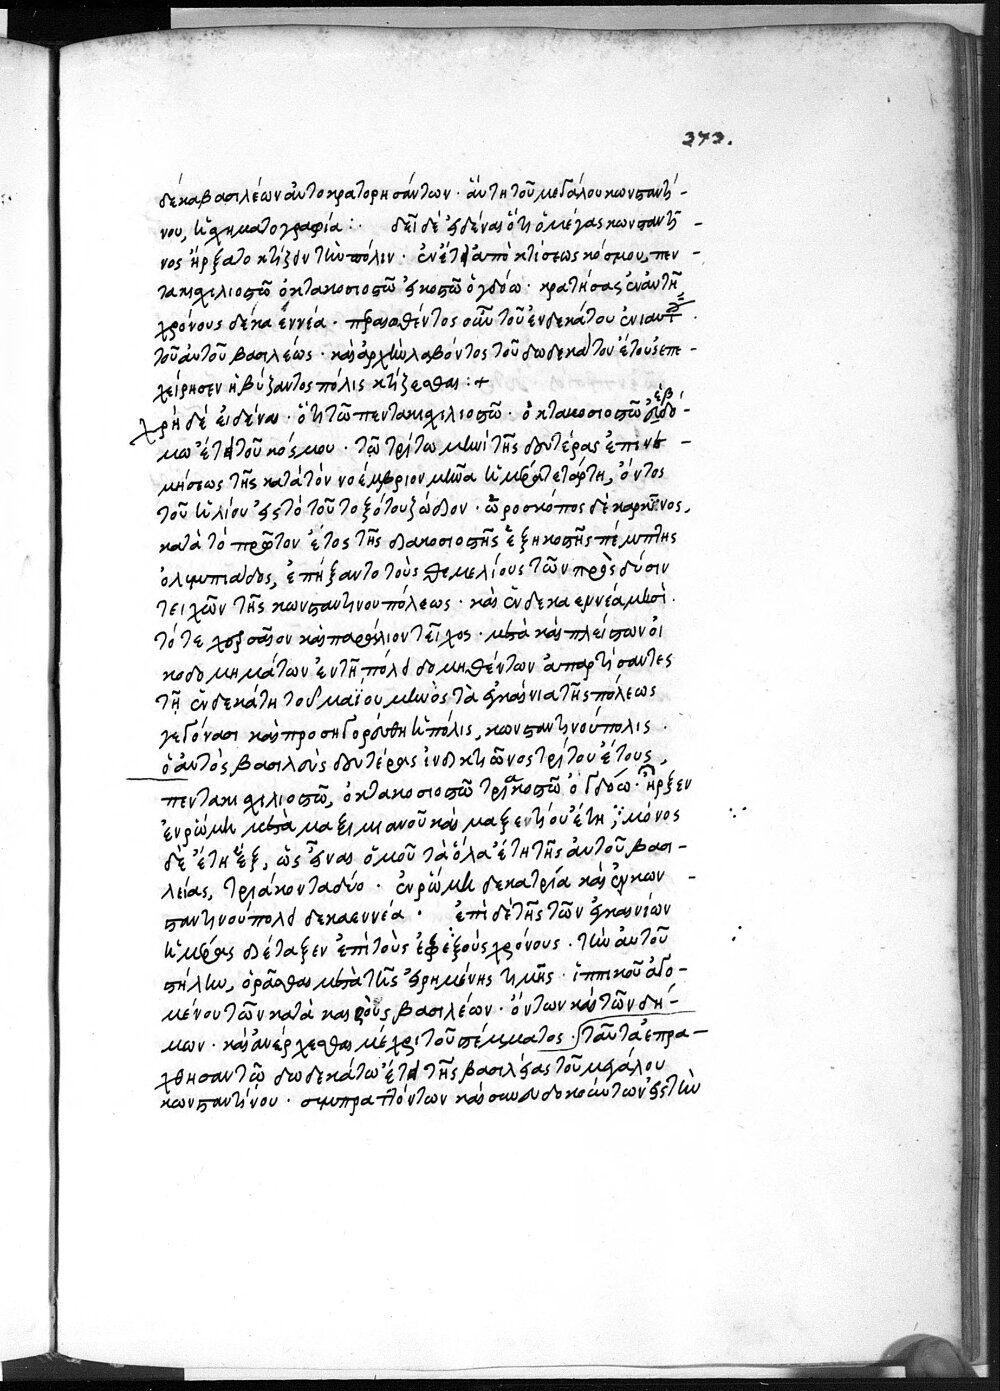 373.
δέκα βασιλέων αὐτοκρατορησάντων · αὕτη τοῦ μεγάλου κωνσταντί-
νου, ἡ χρηματογραφία :· δεῖ δὲ εἰδέναι ὅτι ὁ μέγας κωνσταντῖ-
νος ἤρξατο κτίζειν τὴν πόλιν · ἐν ἔτει ἀπὸ κτίσεως κόσμου, πεν-
τακισχιλιοστῶ ὀκτακοσιοστῶ εἰκοστῶ ὀγδόω · κρατήσας ἐν αὐτῆ
χρόνους δέκα ἐννέα · πρασθέντος οὖν τοῦ ἑνδεκάτου ἐνιαυτ
τοῦ αὐτοῦ βασιλέως · καὶ ἀρχὴν λαβόντος τοῦ δωδεκάτου ἔτους ἐπε-
χείρησεν ἡ βύζαντος πόλις κτίζεσθαι :+
χρὴ δὲ εἰδέναι · ὅτι τῶ πεντακισχιλιοστῶ · ὀκτακοσιοστῶ
μω ἔτει τοῦ κόσμου · τῶ τρίτω μηνὶ τῆς δευτέρας ἐπινε-
μήσεως τῆς κατὰ τὸν νοέμβριον μῆνα ἡμέρα τετάρτη, ὄντος
τοῦ ἡλίου εἰς τὸ τοῦ τοξότου ζώδιον · ὡροσκόπος δὲ καρκῖνος,
κατὰ τὸ πρῶτον ἔτος τῆς διακοσιοστῆς ἑξηκοστῆς πέμπτης
ὀλυμπιάδος, ἐπήξαντο τοὺς θεμελίους τῶν πρὸς δύσιν
τειχῶν τῆς κωνσταντινουπόλεως · καὶ ἐν δεκα εννέα μησὶ ·
τό τε χερσαῖον καὶ παράλιον τεῖχος · μετὰ καὶ πλείστων οἰ
κοδομημάτων ἐν τῆ πόλει δομηθέντων ἀπαρτήσαντες
τῆ ἑνδεκάτη τοῦ μαΐου μηνὸς τὰ ἐγκαίνια τῆς πόλεως
γεγόνασι καὶ προσηγορεύθη ἡ πόλις, κωνσταντινούπολις ·
ὁ αὐτὸς βασιλεὺς δευτέρας ἰνδικτιῶνος τρίτου ἔτους,
πεντακισχιλιοστῶ, ὀκτακοσιοστῶ τριακοστῶ ὀγδόω · ἦρξεν
ἐν ρώμη μετὰ μαξιμιανοῦ καὶ μαξεντίου ἔτη ι · μόνος
δὲ ἔτη ἕξ, ὡς εἶναι ὁμοῦ τὰ ὅλα ἔτη τῆς αὐτοῦ βασι-
λείας, τριάκοντα δύο · ἐν ρώμη δεκατρία καὶ ἐν κων
σταντινουπόλει δεκαεννέα · ἐπὶ δὲ τῆς τῶν ἐγκαινίων
ἡμέρας διέταξεν ἐπὶ τοὺς ἐφεξοὺς χρόνους · τὴν αὐτοῦ
στήλην, ὁρᾶσθαι μετὰ τῆς εἰρημένης τιμῆς · ἱππικοῦ ἀγο-
μένου τῶν κατὰ καιροὺς βασιλέων · ὄντων καὶ τῶν δή-
μων · καὶ ἀνέρχεσθαι μέχρι τοῦ στέμματος · ταῦτα ἐπρα-
χθησαν τῶ δωδεκάτω ἔτει τῆς βασιλείας τοῦ μεγάλου
κωνσταντίνου · συμπραττόντων καὶ συνευδοκούντων εἰς τὴν